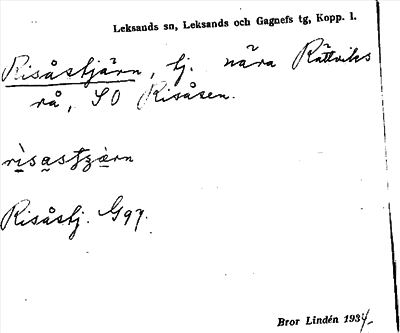 Leksands sn, Leksands och Gagnefs tg, Kopp. l.
Risåstjärn, tj. nära Rättviks
rå, SO Risåsen.
rìsastjärn
Risåstj. G97.
Bror Lindén 1934